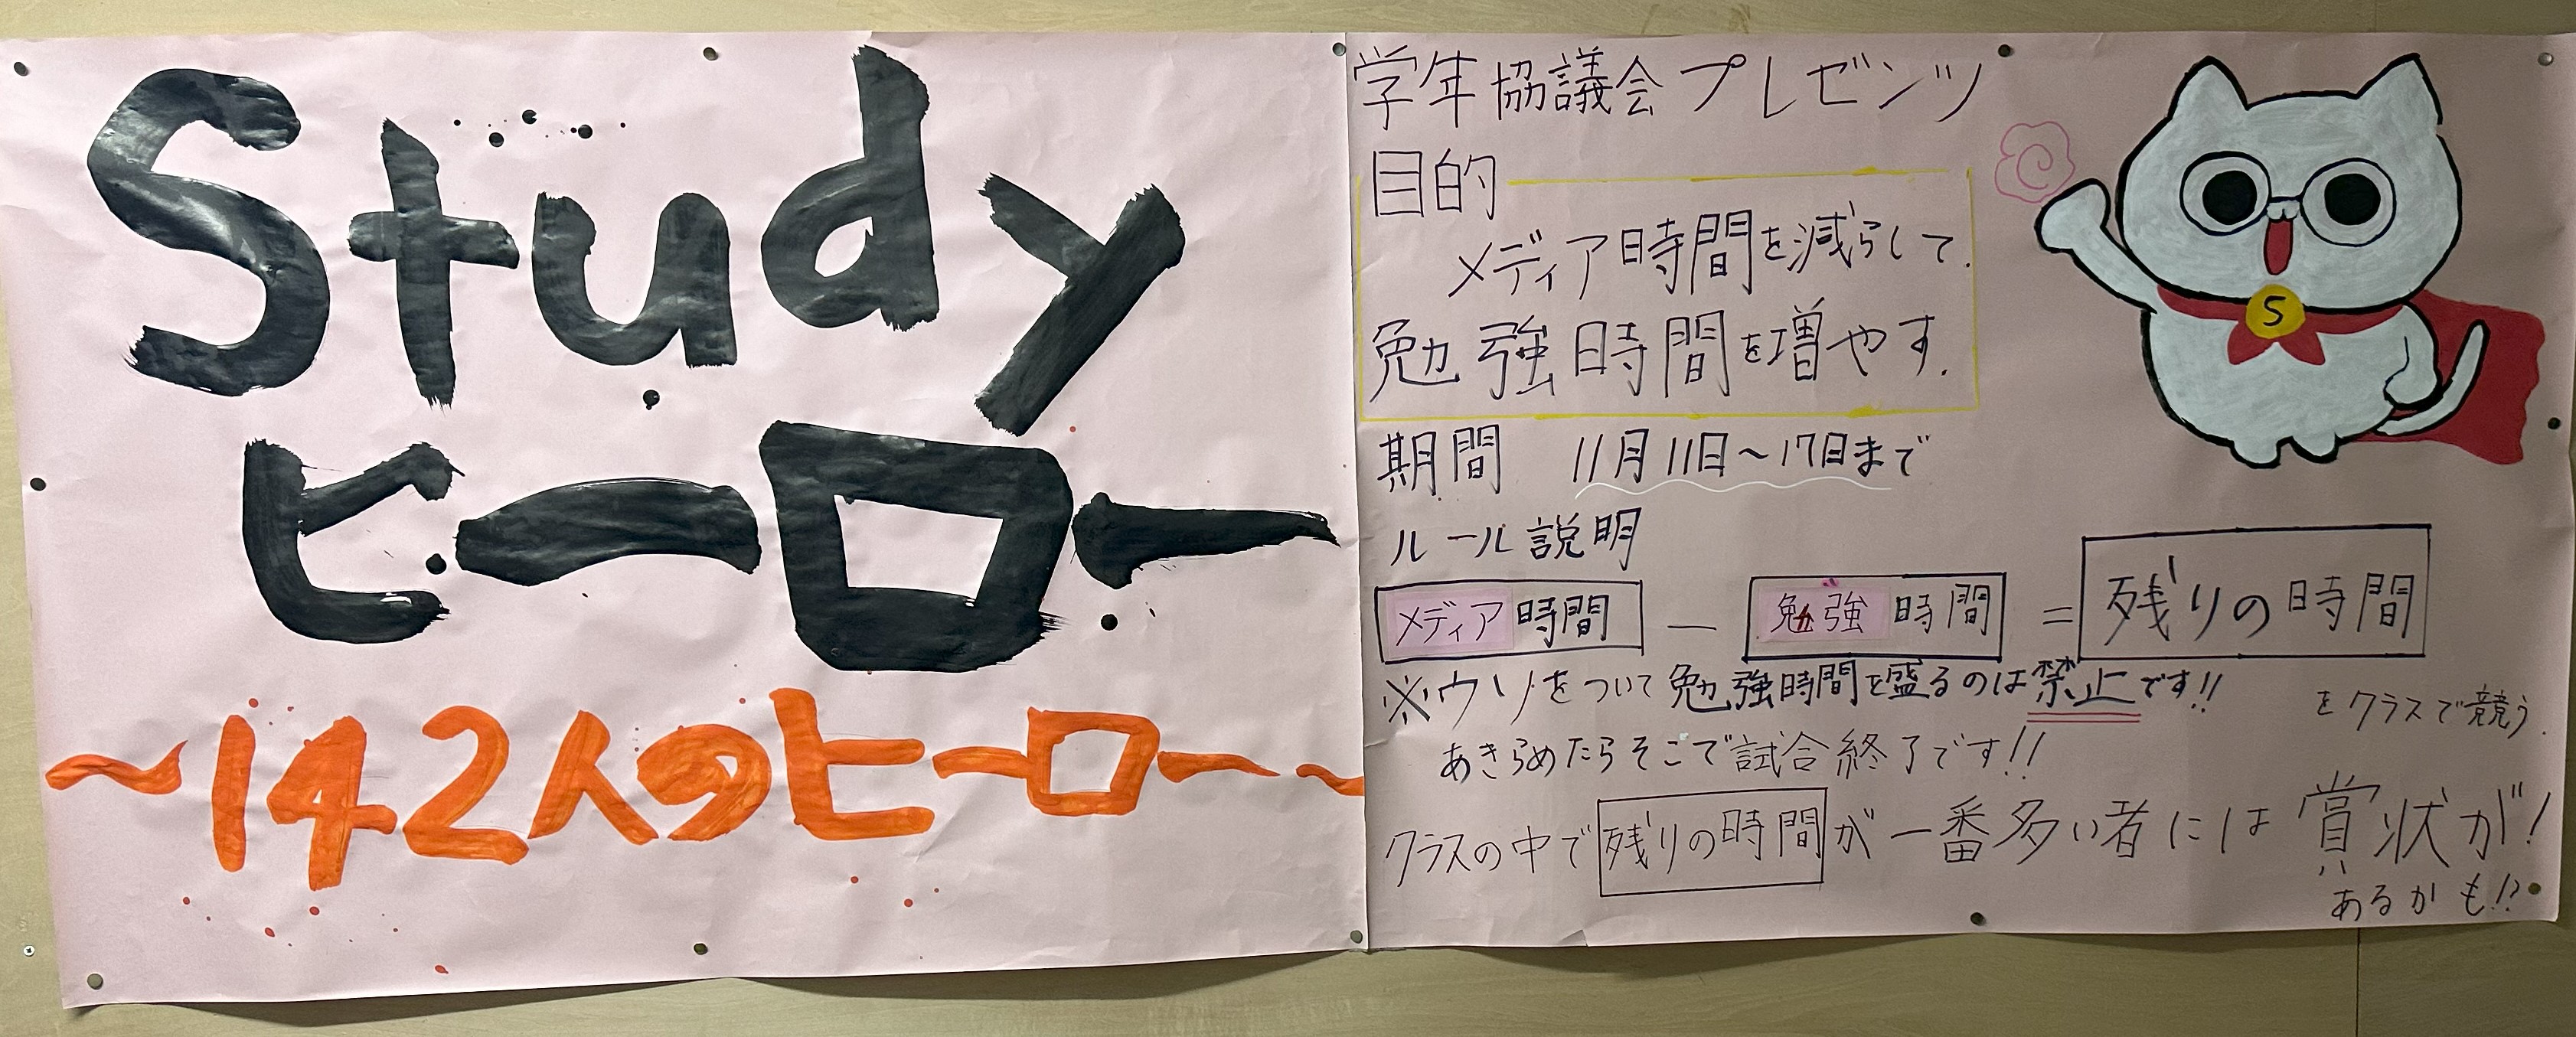 Study
ヒーロー
〜142人のヒーロー〜
学年協議会プレゼンツ
目的
メディア時間を減らして.
勉強時間を増やす.
期間 11月11日〜17日まで
ルール説明
メディア時間 — 勉強時間 = 残りの時間
をクラスで競う.
※ウソをついて勉強時間を盛るのは禁止です!!
あきらめたらそこで試合終了です!!
クラスの中で残りの時間が一番多い者には賞状が!
あるかも!?
S